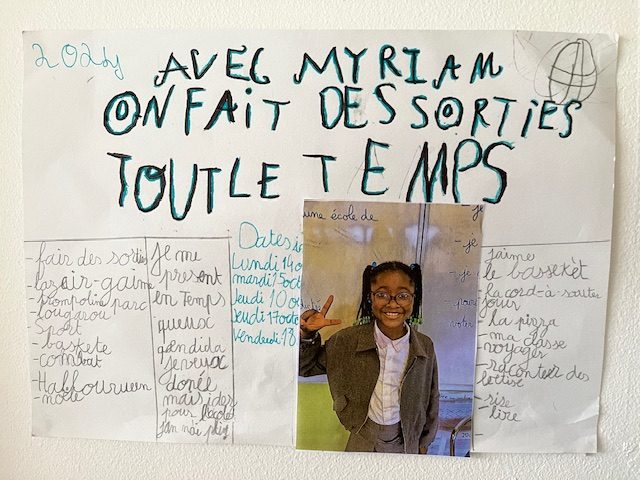 2024
AVEC MYRIAM
ON FAIT DES SORTIES
TOUT LE TEMPS
- fair des sorties
lazair-gaime
prompoline parc
lougarou!
Sport
- baskete
- combat
Hallourueen
- note
Je me
present
en temps
queux
candida
je veux
donée
mais ides
pour l'école
j'an n'ai plein
Dates
Lundi 14
mardi 15
jeudi 10
jeudi 17
vendredi 18
une école de
- je
- je
- je
voter
- j'aime
le bassekèt
- la cord-à-sauter
jour
- La pizza
- ma classe
- voyager
- raconter des
bétise
- rise
- lire